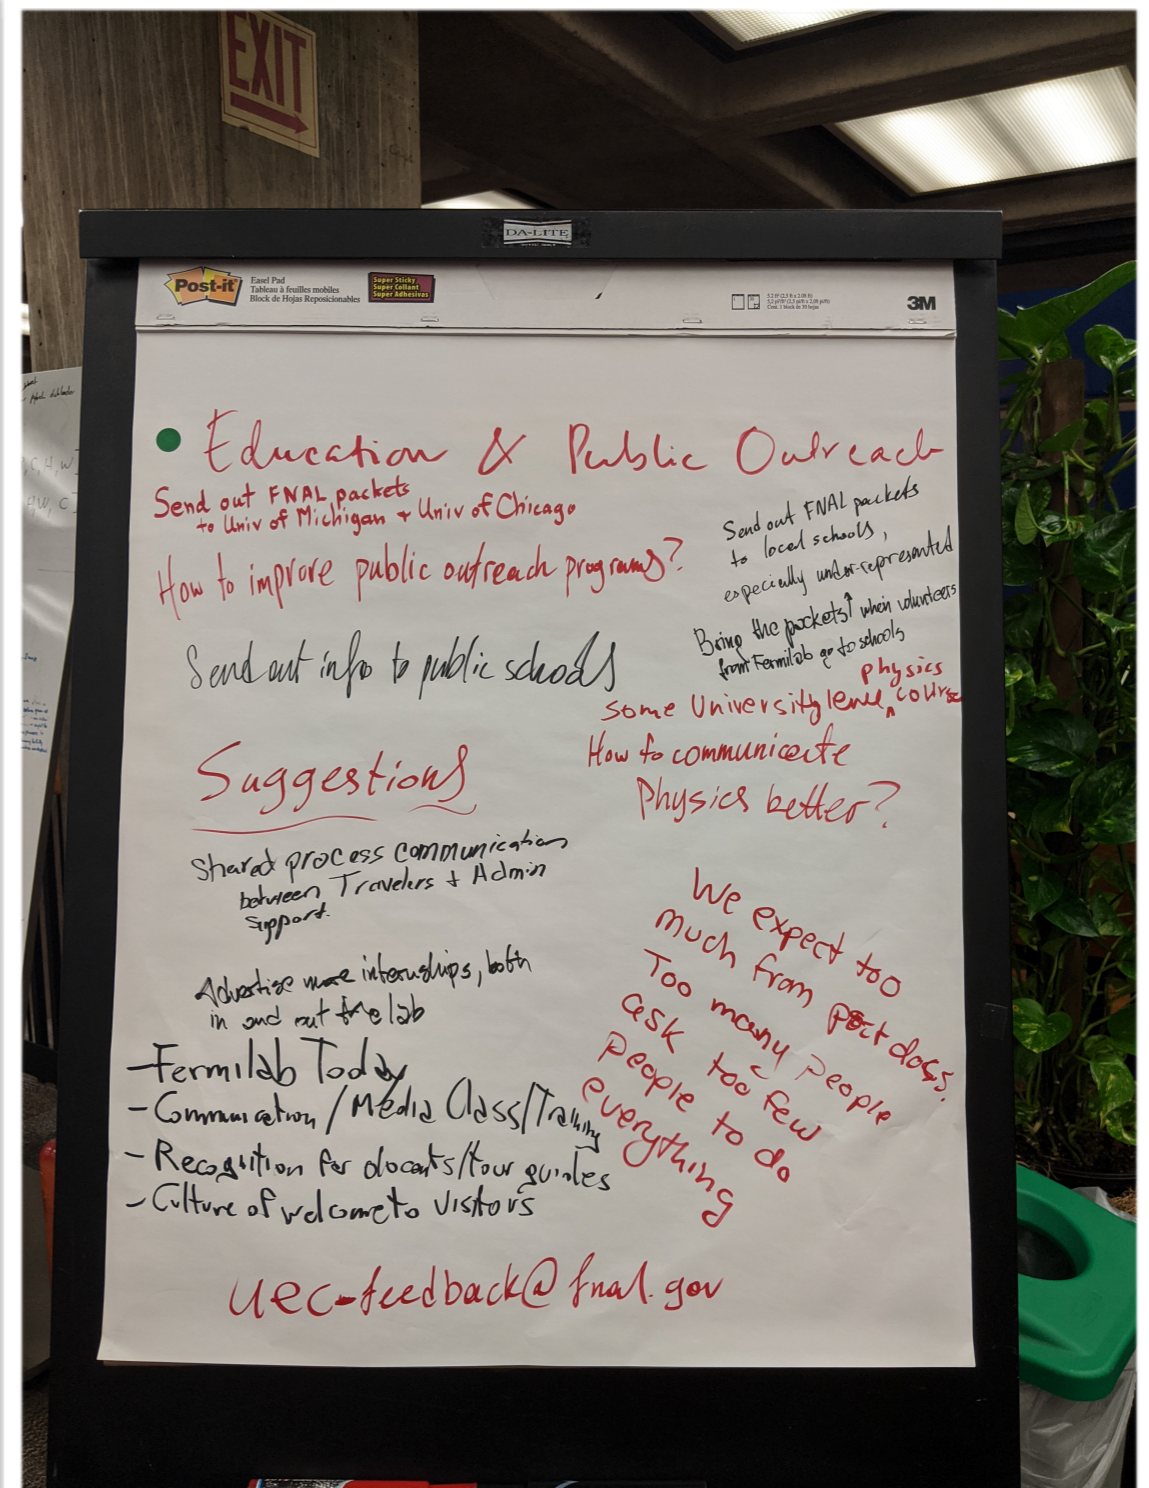 EXIT
DA-LITE
Post-it
Easel Pad
Tableau à feuilles mobiles
Block de Hojas Reposicionables
Super Sticky
Super Collant
Super Adhesivas
3M
Education & Public Outreach
Send out FNAL packets
to Univ of Michigan + Univ of Chicago
How to improve public outreach programs?
Send out FNAL packets
to local schools,
especially under-represented
Bring the packets↑ when volunteers
from Fermilab go to schools
Send out info to public schools
physics
some University level ^ course
How to communicate
Physics better?
Suggestions
Shared process communication
between Travelers + Admin
Support.
Advertise more internships, both
in and out the lab
- Fermilab Today
- Communication / Media Class/Training
- Recognition for docents/tour guides
- Culture of welcome to visitors
We expect too
much from post docs.
Too many people
ask too few
people to do
everything
uec-feedback@fnal.gov